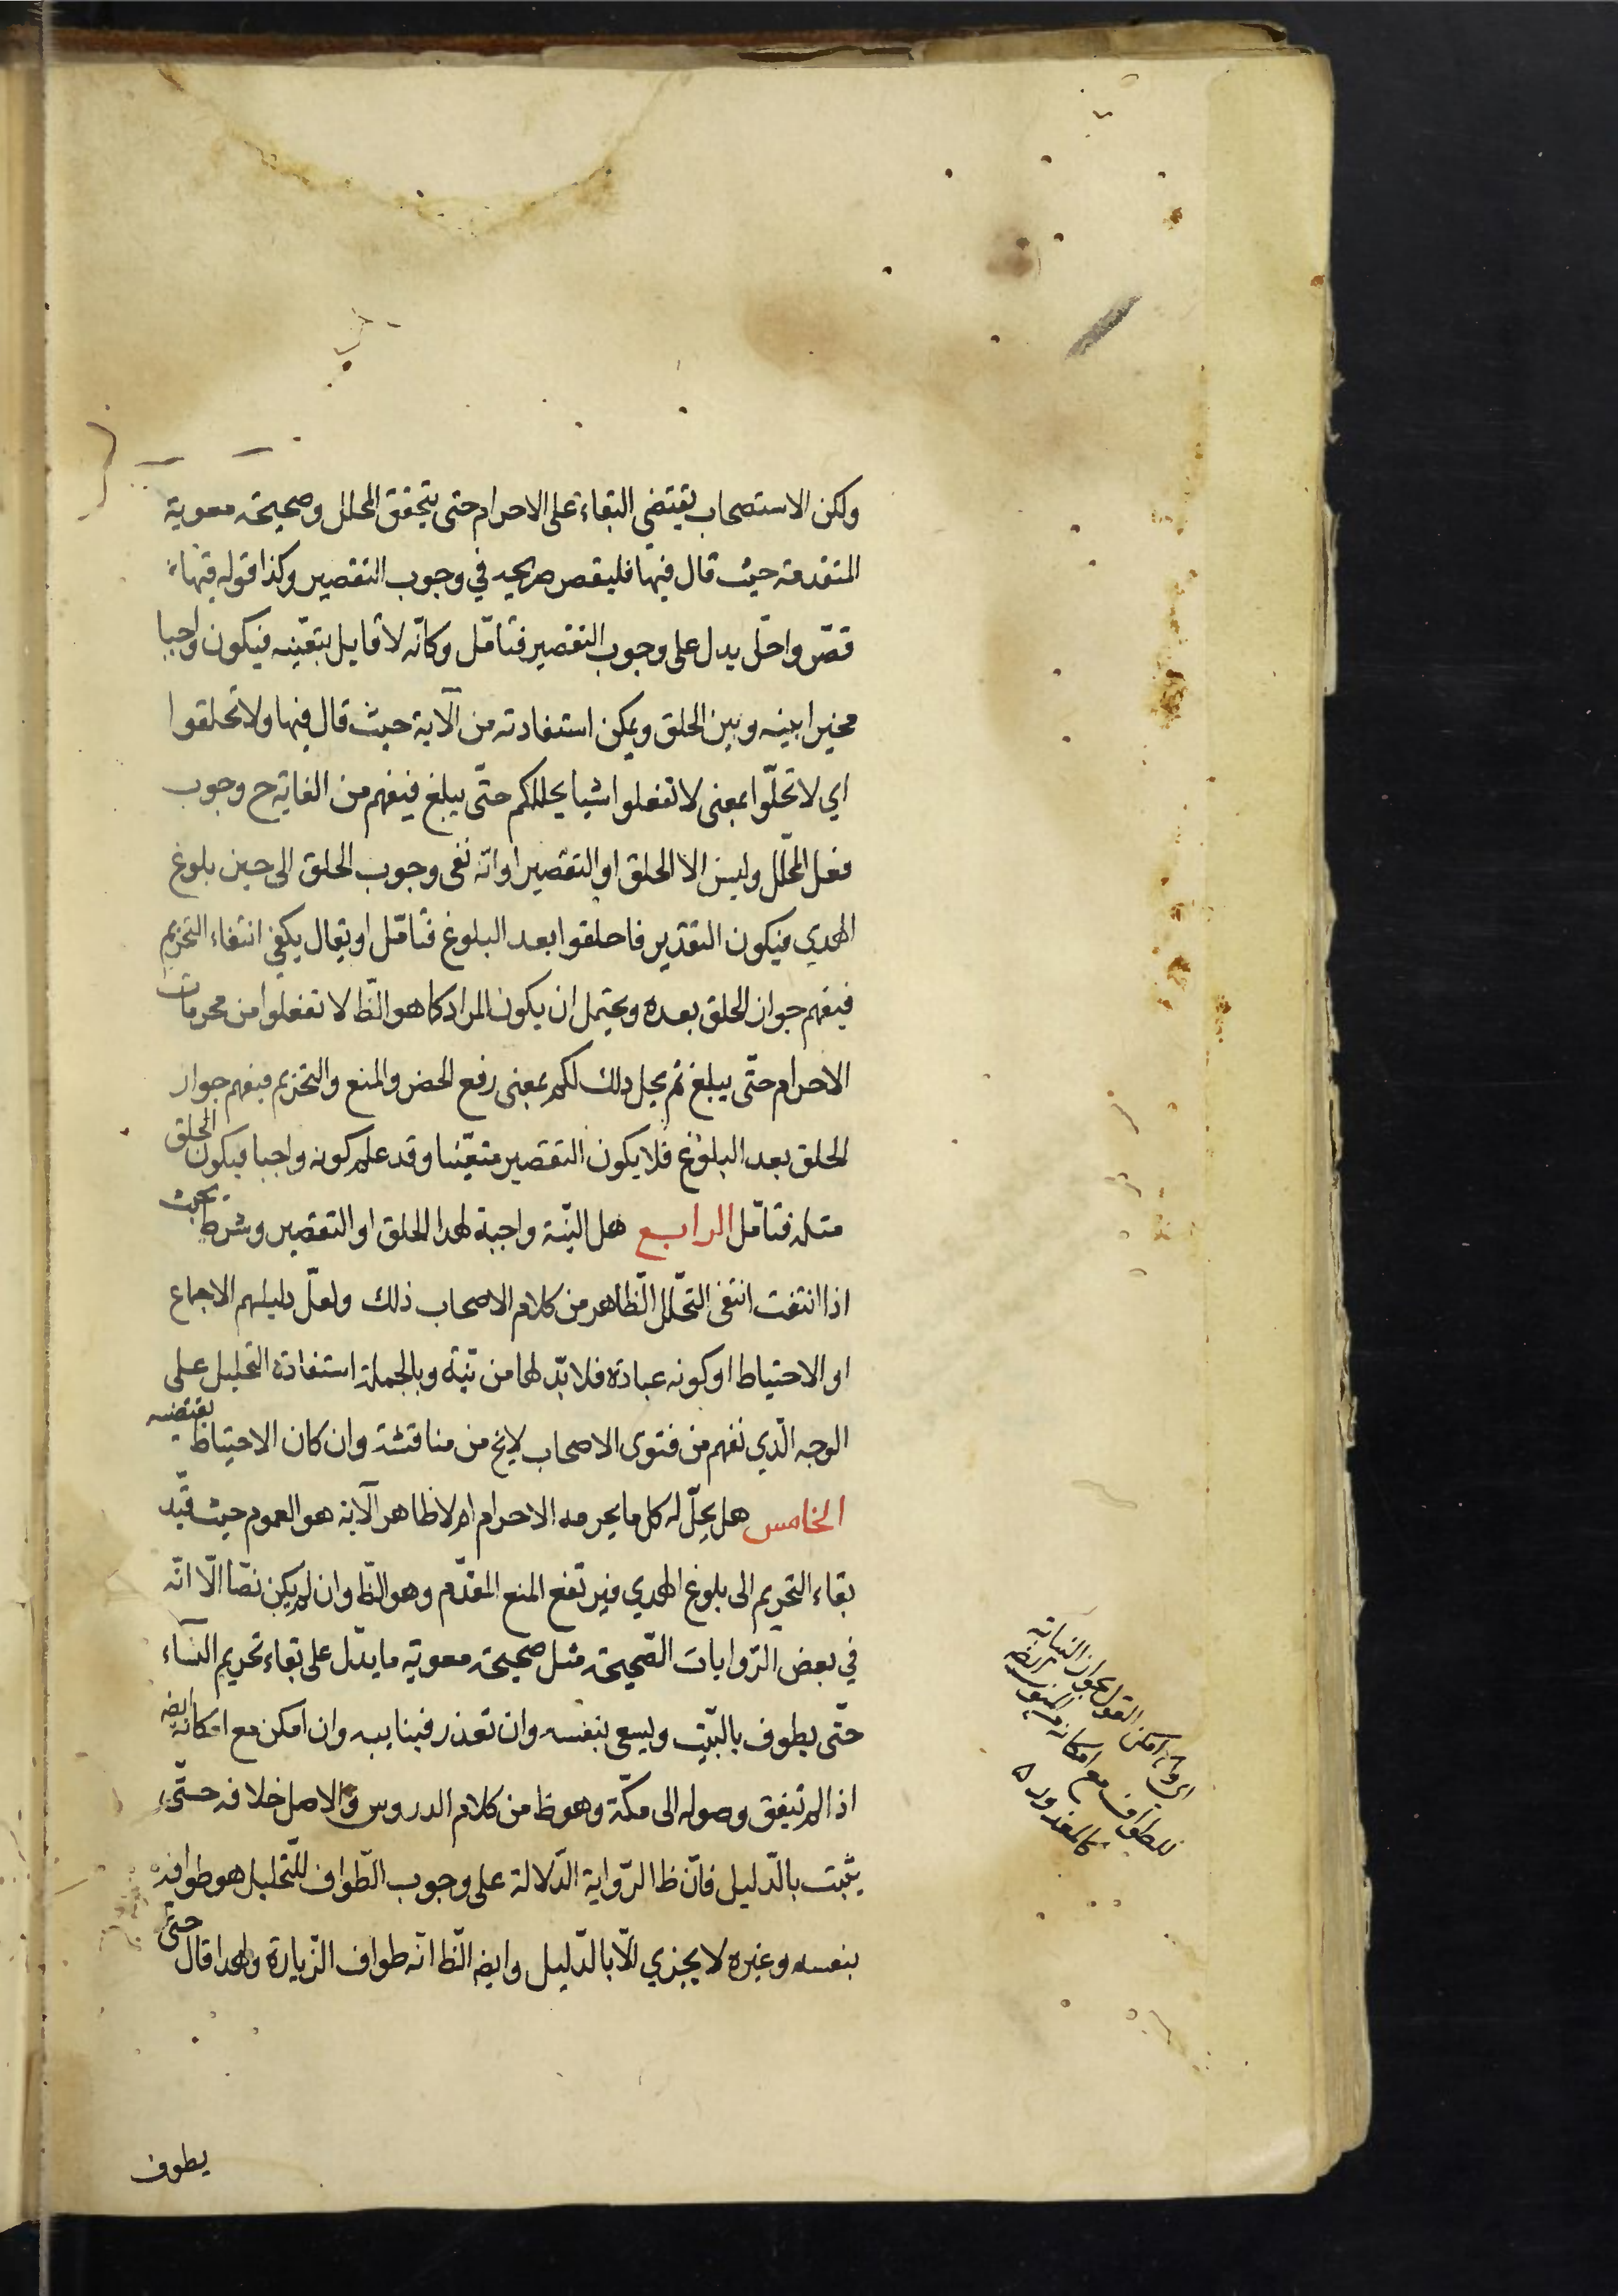 ولكن الاستصحاب يقتضي البقاء على الاحرام حتى يتحقق المحلل وصحيحة معوية
المتقدمة حيث قال فيها فليقصر صريحه في وجوب التقصير وكذا قوله فيها
قصّر واحلّ يدل على وجوب التقصير فتأمّل وكانّه لا قايل بتعيّنه فيكون واجبا
مخيرا بينه وبين الحلق ويمكن استفادته من الآية حيث قال فيها ولا تحلقوا
اي لا تحلّوا بمعنى لا تفعلوا شيا يحللكم حتّى يبلغ فيفهم من الغاية ح وجوب
فعل المحلّل وليس الا الحلق او التقصير او انّه نفى وجوب الحلق الى حين بلوغ
الهدي فيكون التقدير فاحلقوا بعد البلوغ فتأمّل او يقال يكفي انتفاء التحريم
فيفهم جواز الحلق بعده ويحتمل ان يكون المراد كما هو الظّ لا تفعلوا من محرمات
الاحرام حتّى يبلغ ثم يحل ذلك لكم بمعنى رفع الحضر والمنع والتحريم فيفهم جواز
الحلق بعد البلوغ فلا يكون التقصير متعيّنا وقد علم كونه واجبا فيكون الحلق
مثله فتأمّل الرابع هل النيّة واجبة لهذا الحلق او التقصير وشرط بحيث
اذا انتفت انتفى التحلّل الظّاهر من كلام الاصحاب ذلك ولعلّ دليلهم الاجماع
او الاحتياط او كونه عبادة فلا بدّ لها من نيّة وبالجملة استفادة التحليل على
الوجه الّذي نفهم من فتوى الاصحاب لا يخ من مناقشة وان كان الاحتياط يقتضيه
الخامس هل يحلّ له كل ما يحرمه الاحرام ام لا ظاهر الآية هو العموم حيث قيّد
بقاء التحريم الى بلوغ الهدي فيرتفع المنع المقدّم وهو الظّ وان لم يكن نصّا الّا انّه
في بعض الرّوايات الصّحيحة مثل صحيحة معوية ما يدّل على بقاء تحريم النّساء
حتّى يطوف بالبيّت ويسعى بنفسه وان تعذر فبنايبه وان امكن مع امكانه ايضه
اذا لم يتفق وصوله الى مكّة وهو ظ من كلام الدروس والاصل خلافه حتّى
يثبت بالدّليل فانّ ظ الرّواية الدّلالة على وجوب الطّواف للتّحليل هو طوافه
بنفسه وغيره لا يجزي الّا بالدّليل وايضه الظّ انّه طواف الزّيارة ولهذا قال حتّى
يطوف
امكن القول بجواز النيابة
للطواف مع امكانه
كالمعذور ٥